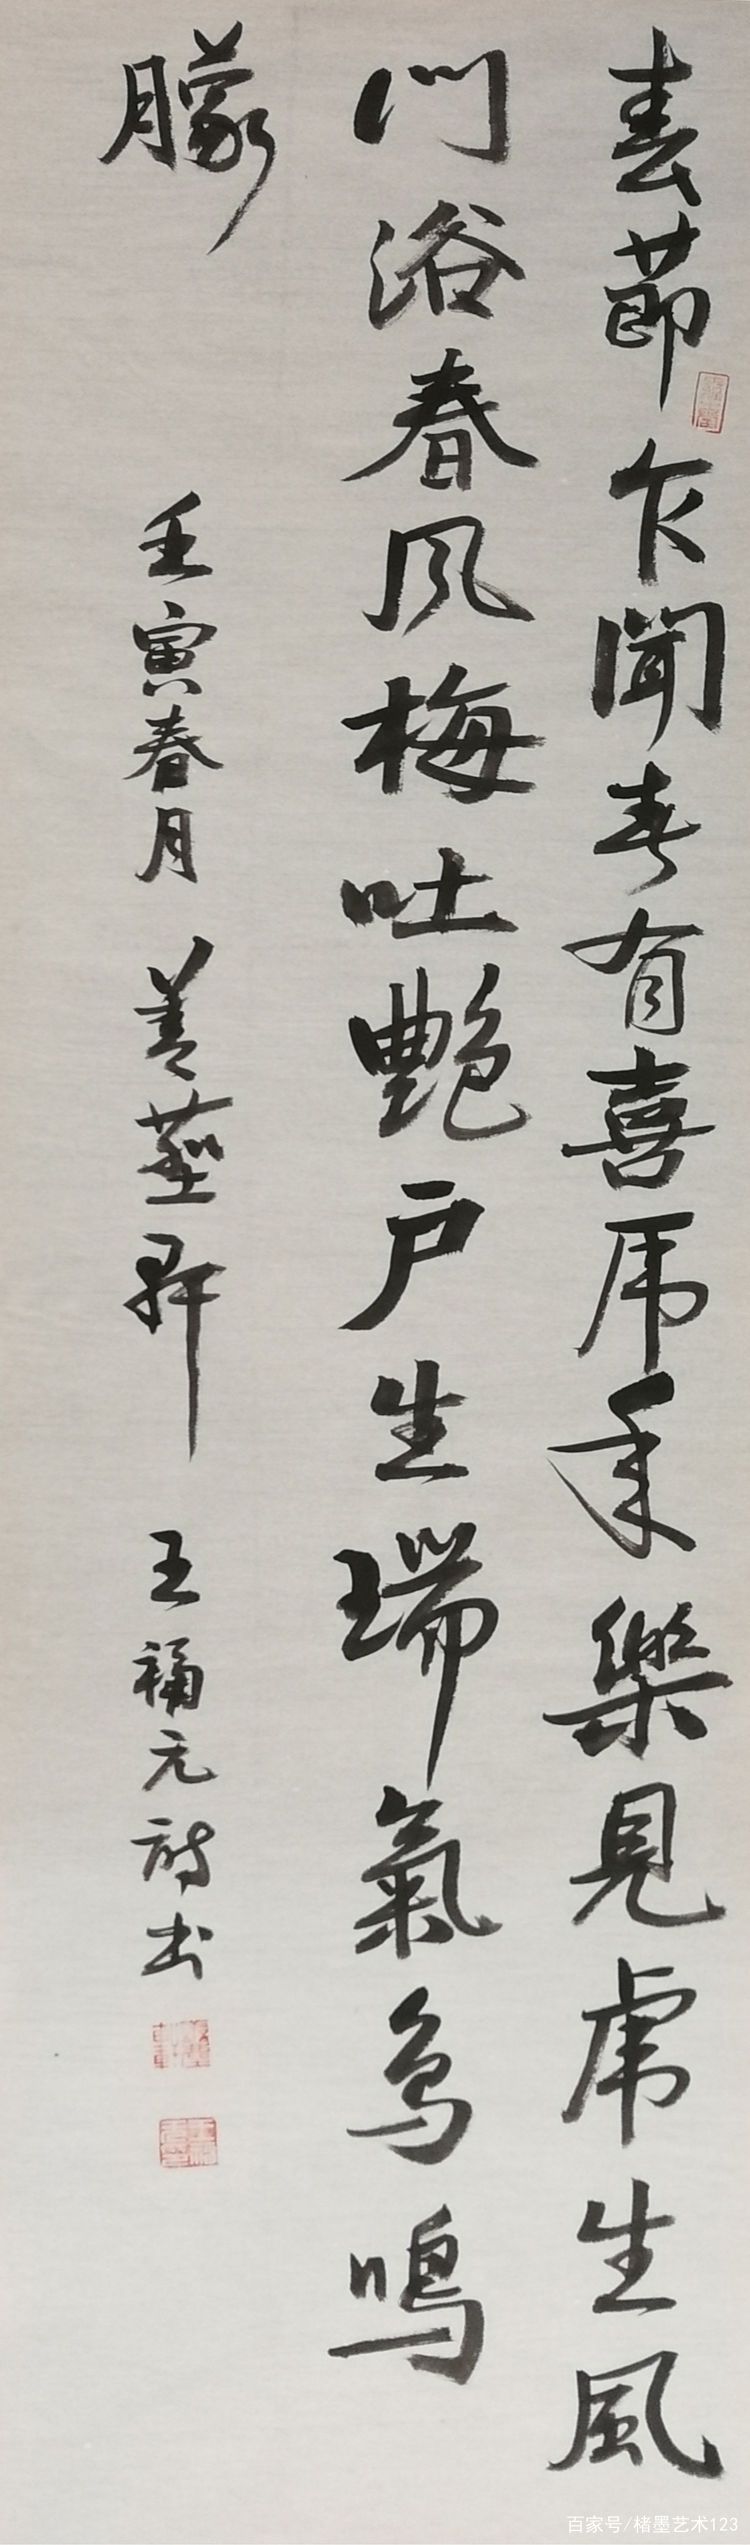 春節乍聞春有喜虎年樂見虎生風
門浴春風梅吐艷戶生瑞氣鳥鳴
朦
壬寅春月 善蓮軒 王福元詩书
百家号/楮墨艺术123